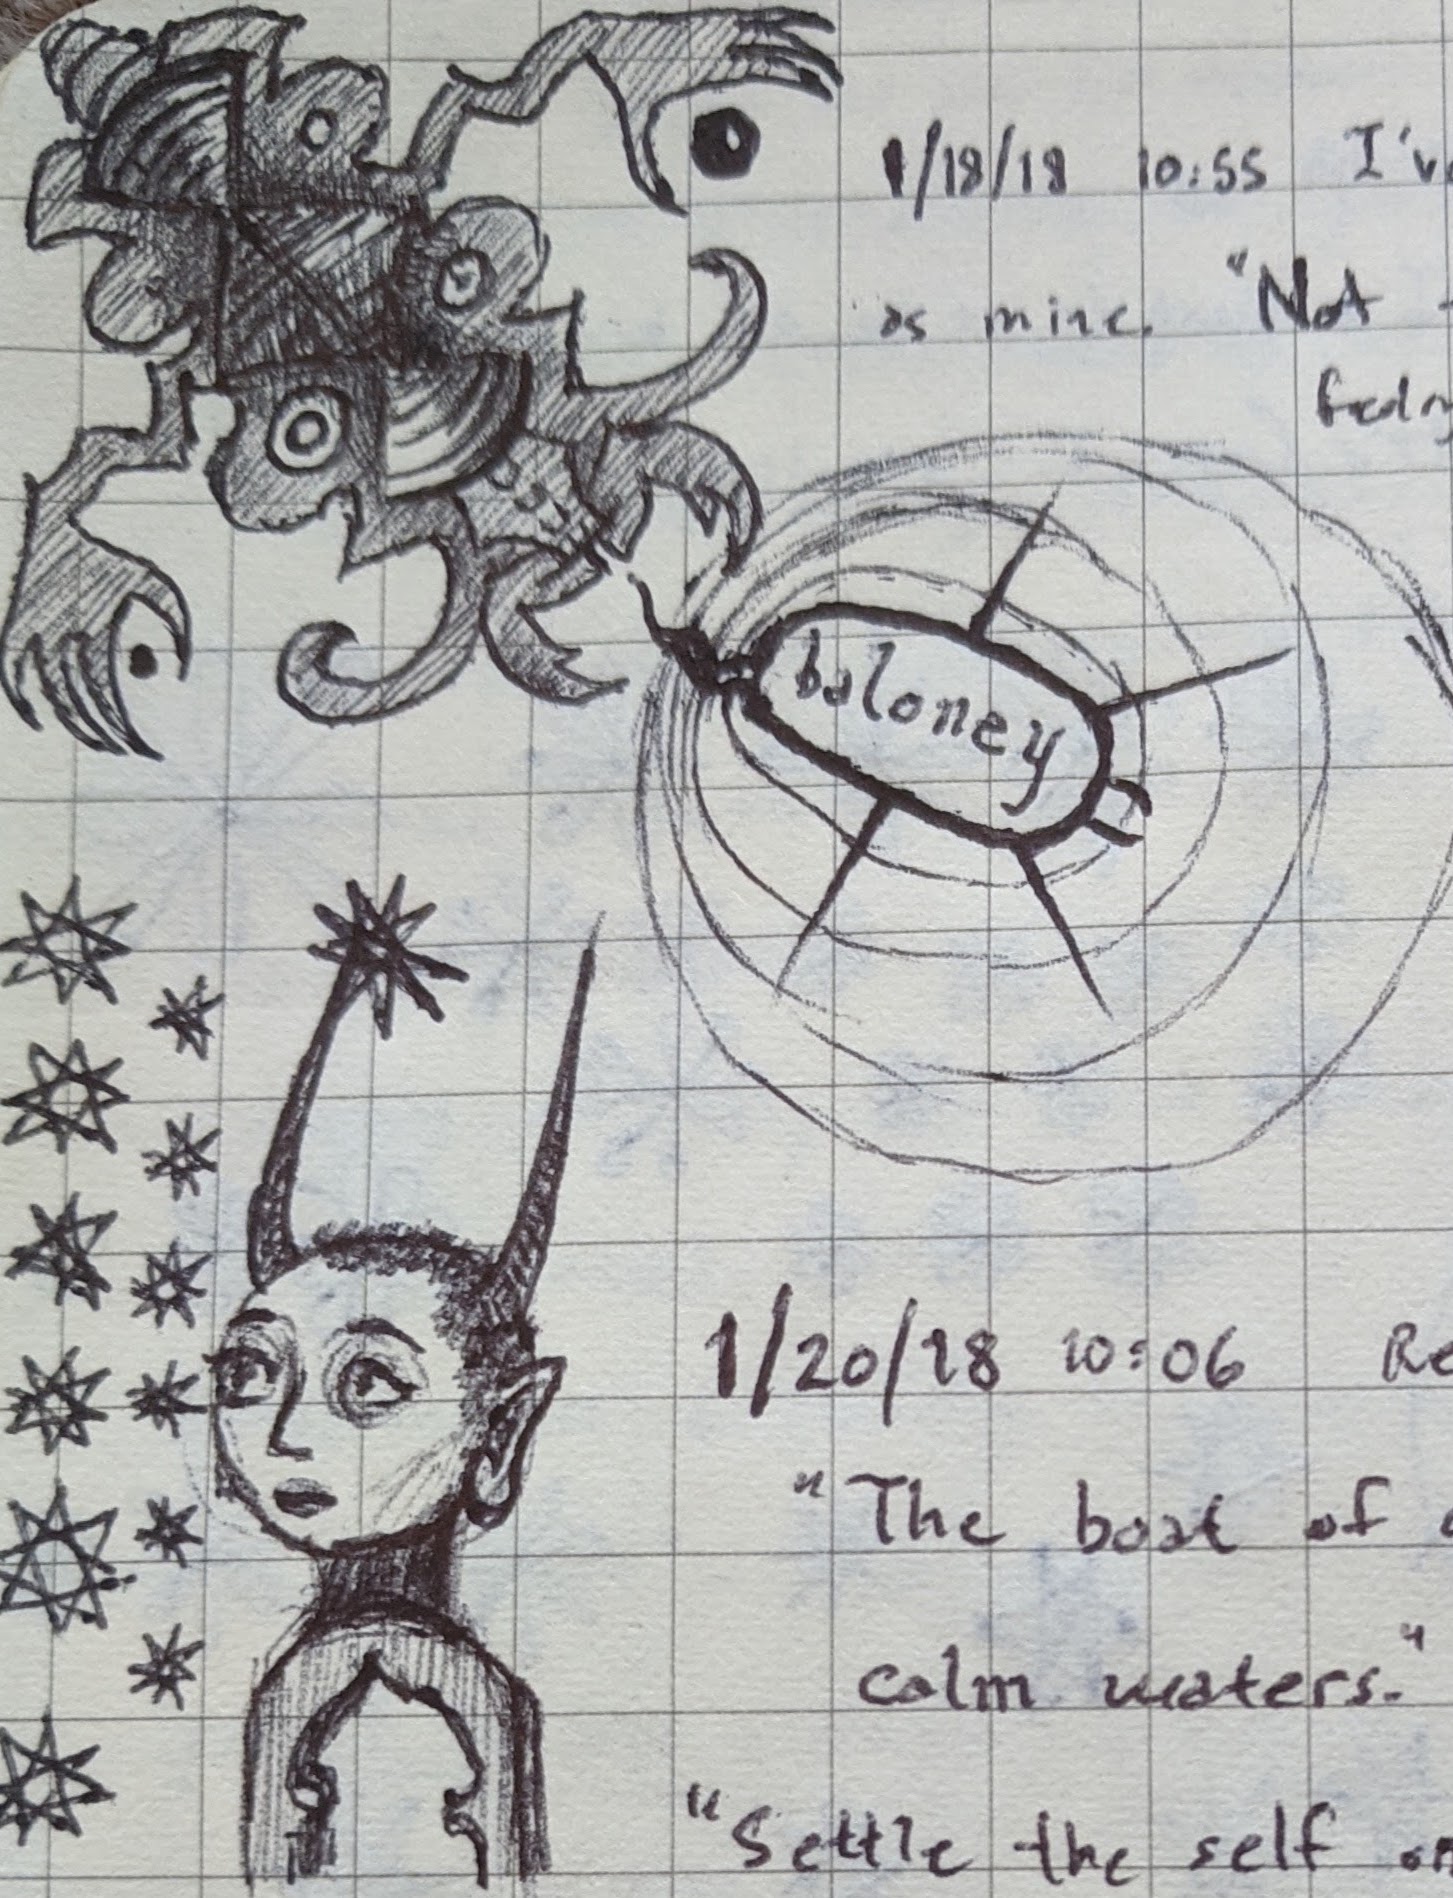 1/18/18 10:55 I'v
as mine. "Not
baloney
1/20/18 10:06 Re
"The boat of
calm waters."
"Settle the self on